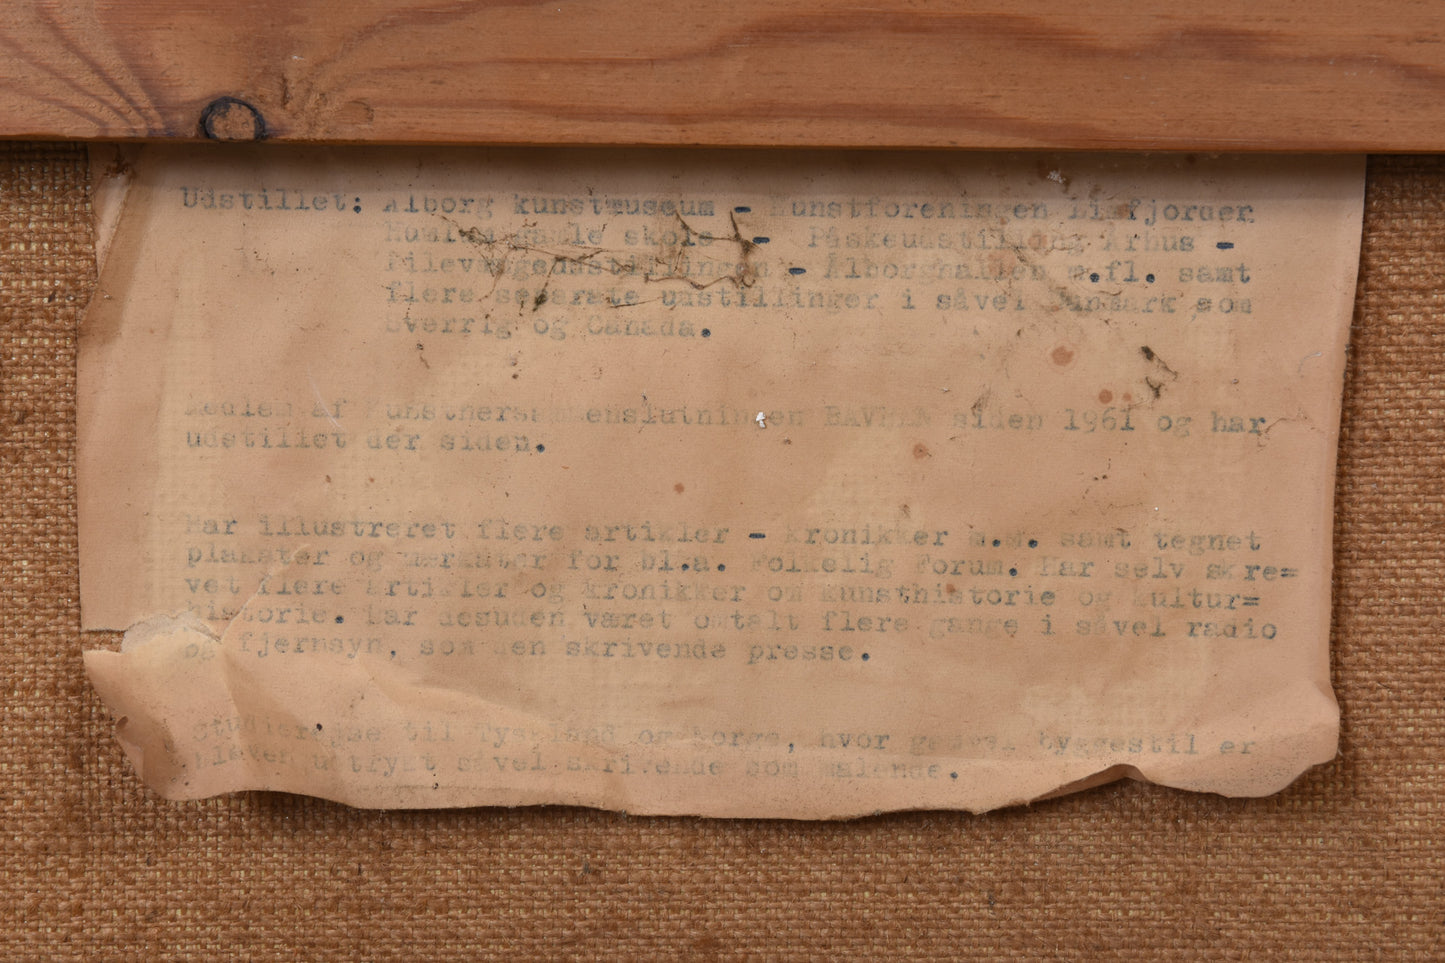 Udstillet: Ålborg kunstmuseum - Kunstforeningen Limfjorden
skole - Påskeudstilling Århus -
Pilevangeudstillingen - Ålborghallen m.fl. samt
flere separate udstillinger i såvel Danmark som
Sverrig og Canada.
Medlem af Kunstnersammenslutningen BAVNEN siden 1961 og har
udstillet der siden.
Har illustreret flere artikler - kronikker m.m. samt tegnet
plakater og mærkater for bl.a. Folkelig Forum. Har selv skre=
vet flere artikler og kronikker om kunsthistorie og kultur=
historie. Har desuden været omtalt flere gange i såvel radio
og fjernsyn, som den skrivende presse.
Studierejse til Tyskland og Norge, hvor gammel byggestil er
bleven udtrykt såvel skrivende som malende.